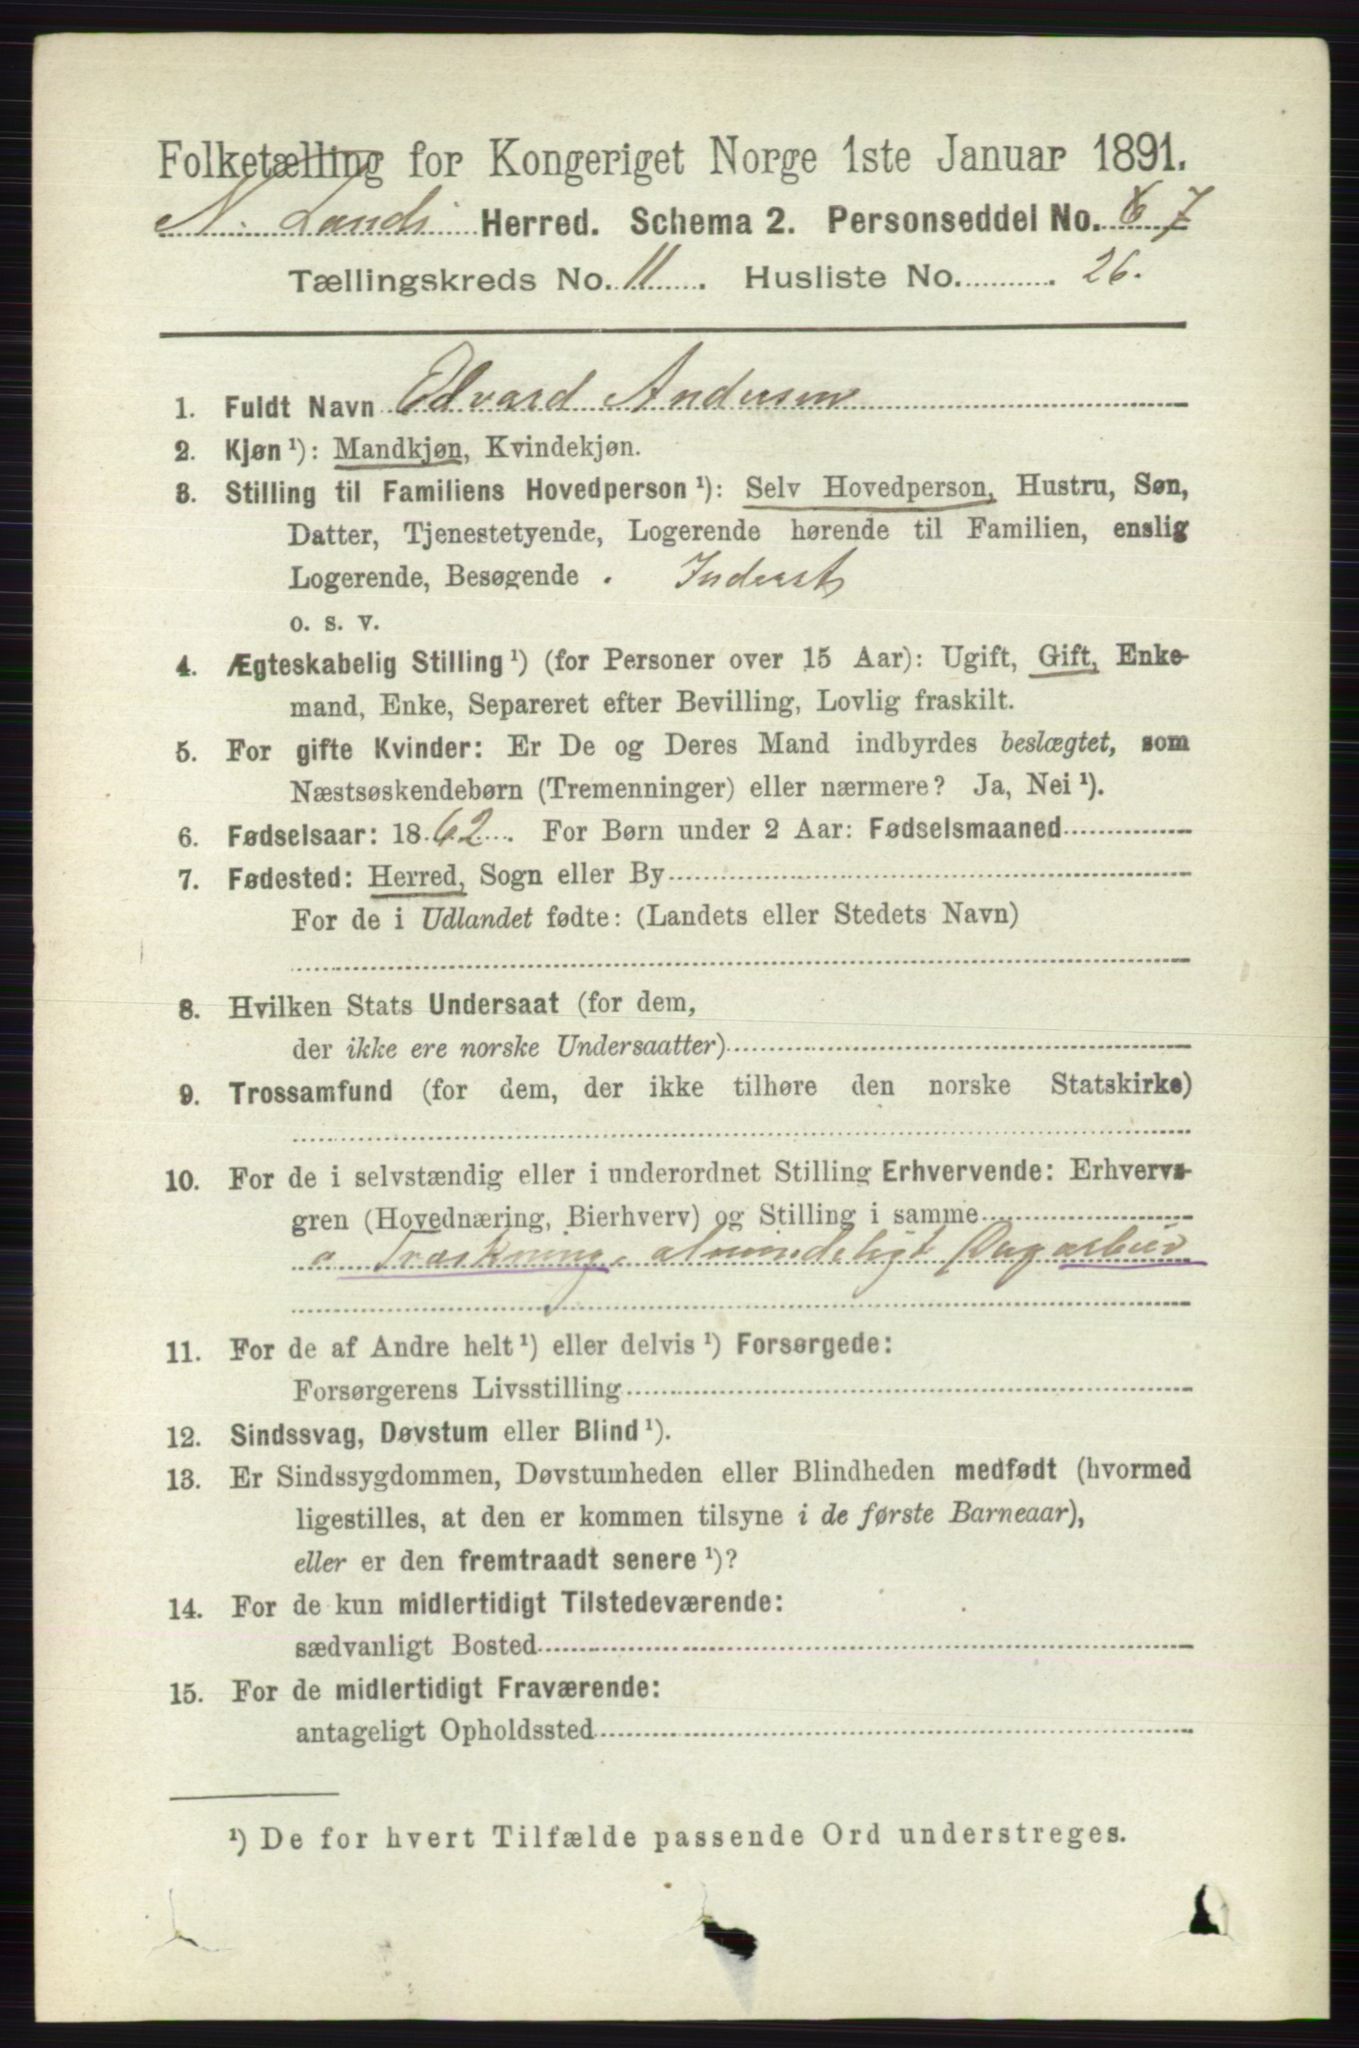 Folketælling for Kongeriget Norge 1ste Januar 1891.
N. Lands Herred. Schema 2. Personseddel No. 6 7
Tællingskreds No. 11. Husliste No. 26.
1. Fuldt Navn Edvard Andersen
2. Kjøn ¹): Mandkjøn, Kvindekjøn.
3. Stilling til Familiens Hovedperson ¹): Selv Hovedperson, Hustru, Søn,
Datter, Tjenestetyende, Logerende hørende til Familien, enslig
Logerende, Besøgende . Inderst
o. s. v.
4. Ægteskabelig Stilling ¹) (for Personer over 15 Aar): Ugift, Gift, Enke-
mand, Enke, Separeret efter Bevilling, Lovlig fraskilt.
5. For gifte Kvinder: Er De og Deres Mand indbyrdes beslægtet, som
Næstsøskendebørn (Tremenninger) eller nærmere? Ja, Nei ¹).
6. Fødselsaar: 1862. For Børn under 2 Aar: Fødselsmaaned
7. Fødested: Herred, Sogn eller By
For de i Udlandet fødte: (Landets eller Stedets Navn)
8. Hvilken Stats Undersaat (for dem,
der ikke ere norske Undersaatter)
9. Trossamfund (for dem, der ikke tilhøre den norske Statskirke)
10. For de i selvstændig eller i underordnet Stilling Erhvervende: Erhvervs-
gren (Hovednæring, Bierhverv) og Stilling i samme
a Træskning, almindeligt Dagarbeid
11. For de af Andre helt ¹) eller delvis ¹) Forsørgede:
Forsørgerens Livsstilling
12. Sindssvag, Døvstum eller Blind ¹).
13. Er Sindssygdommen, Døvstumheden eller Blindheden medfødt (hvormed
ligestilles, at den er kommen tilsyne i de første Barneaar),
eller er den fremtraadt senere ¹)?
14. For de kun midlertidigt Tilstedeværende:
sædvanligt Bosted
15. For de midlertidigt Fraværende:
antageligt Opholdssted
¹) De for hvert Tilfælde passende Ord understreges.